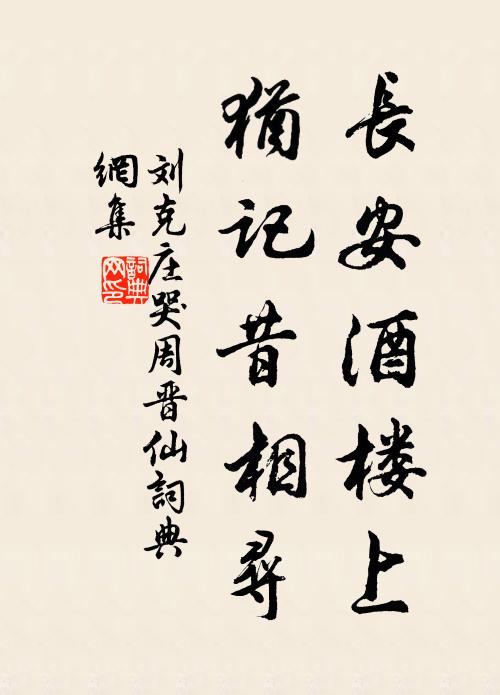 長安酒楼上
猶記昔相尋
刘克庄哭周晋仙詞典
網集
詞典網印